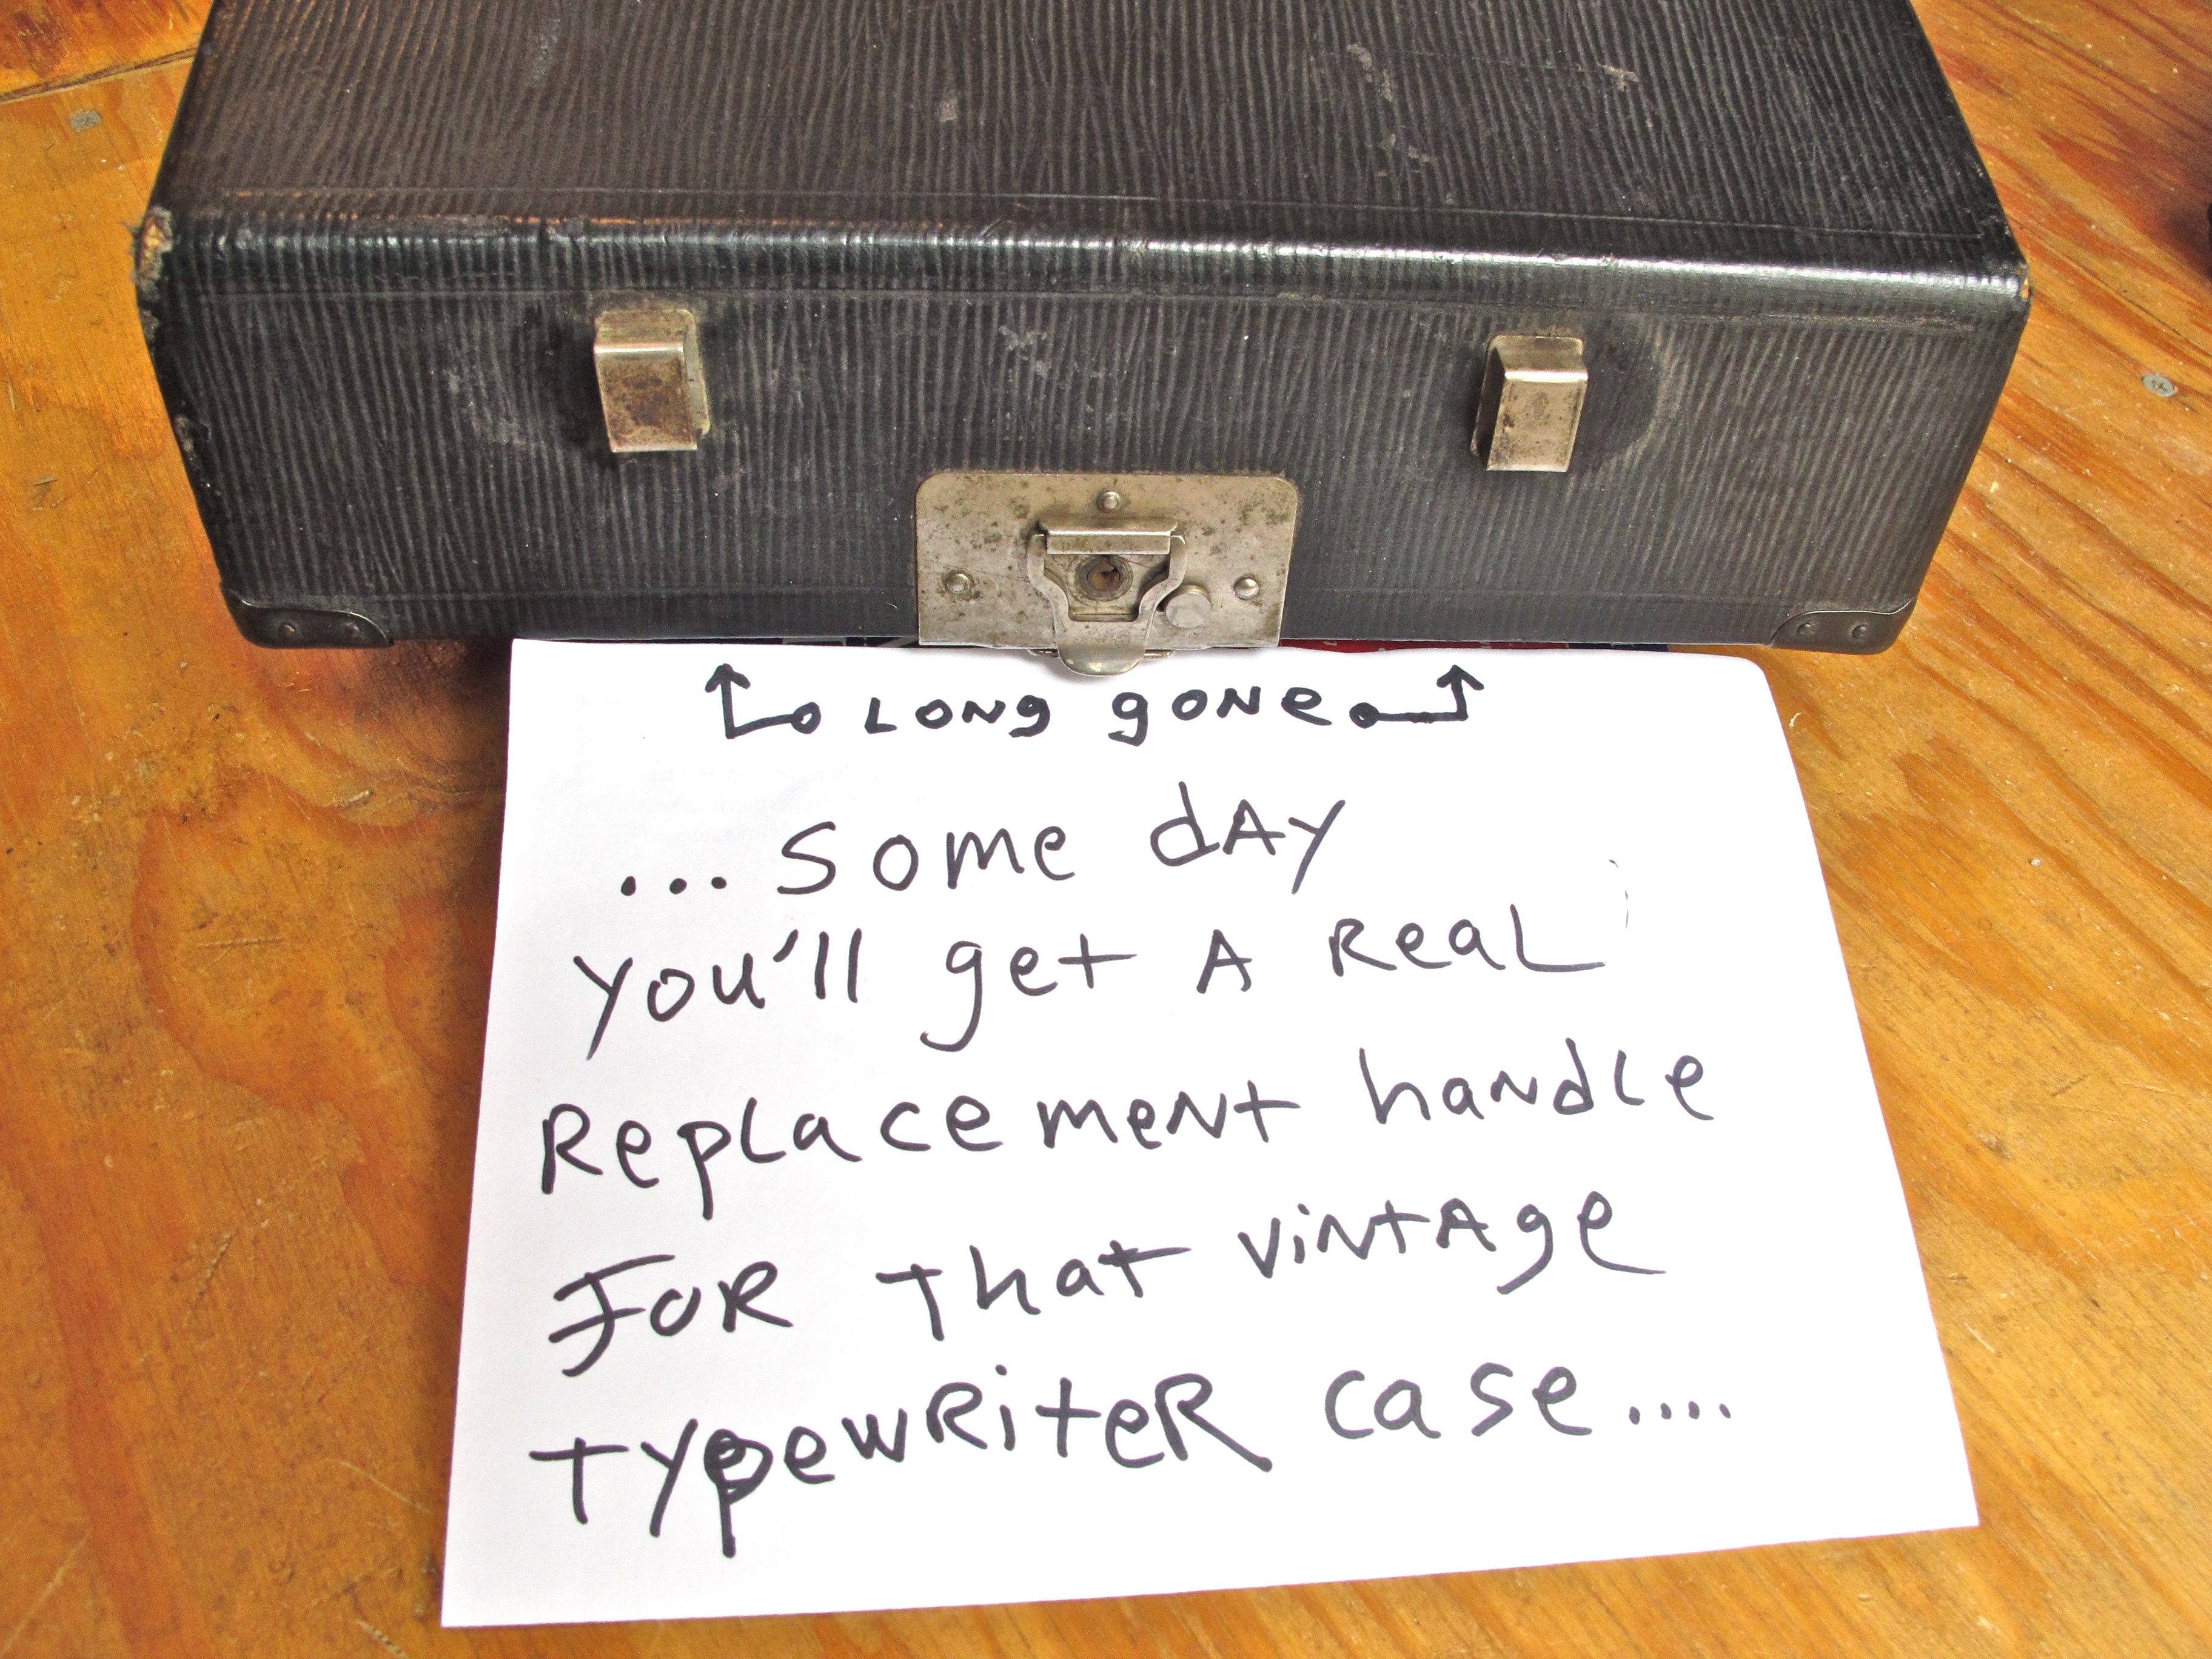 LONG gONe
...Some dAy
you'll get A ReaL
RepLacemeNt haNdLe
FOR that ViNtAge
typewRiteR case....